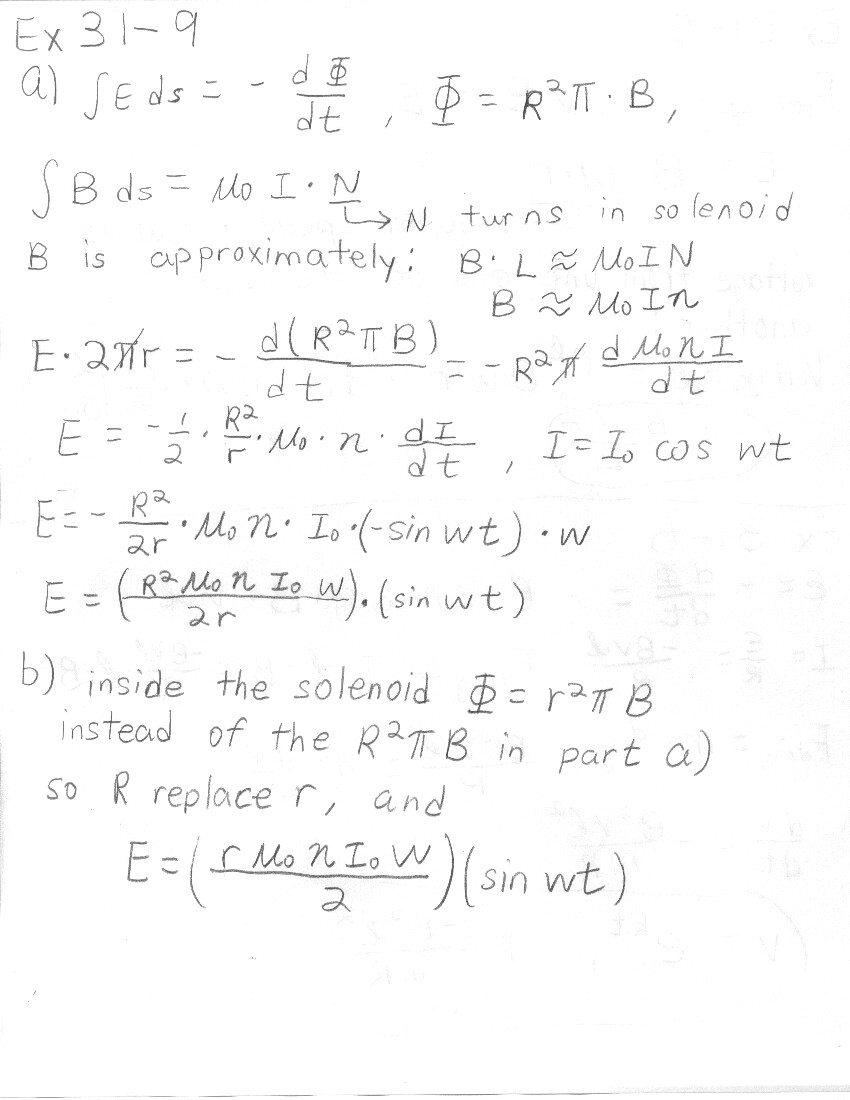 Ex 31-9
a) ∫E ds = - dΦ/dt , Φ = R²π · B,
∫B ds = μ₀ I · N
↳ N turns in solenoid
B is approximately: B · L ≈ μ₀IN
B ≈ μ₀In
E · 2πr = - d(R²πB)/dt = -R²π d μ₀nI/dt
E = -1/2 · R²/r · μ₀ · n · dI/dt , I = I₀ cos wt
E = - R²/2r · μ₀ n · I₀ · (-sin wt) · w
E = (R² μ₀ n I₀ w/2r) · (sin wt)
b) inside the solenoid Φ = r²π B
instead of the R²πB in part a)
so R replace r, and
E = (r μ₀ n I₀ w/2)(sin wt)